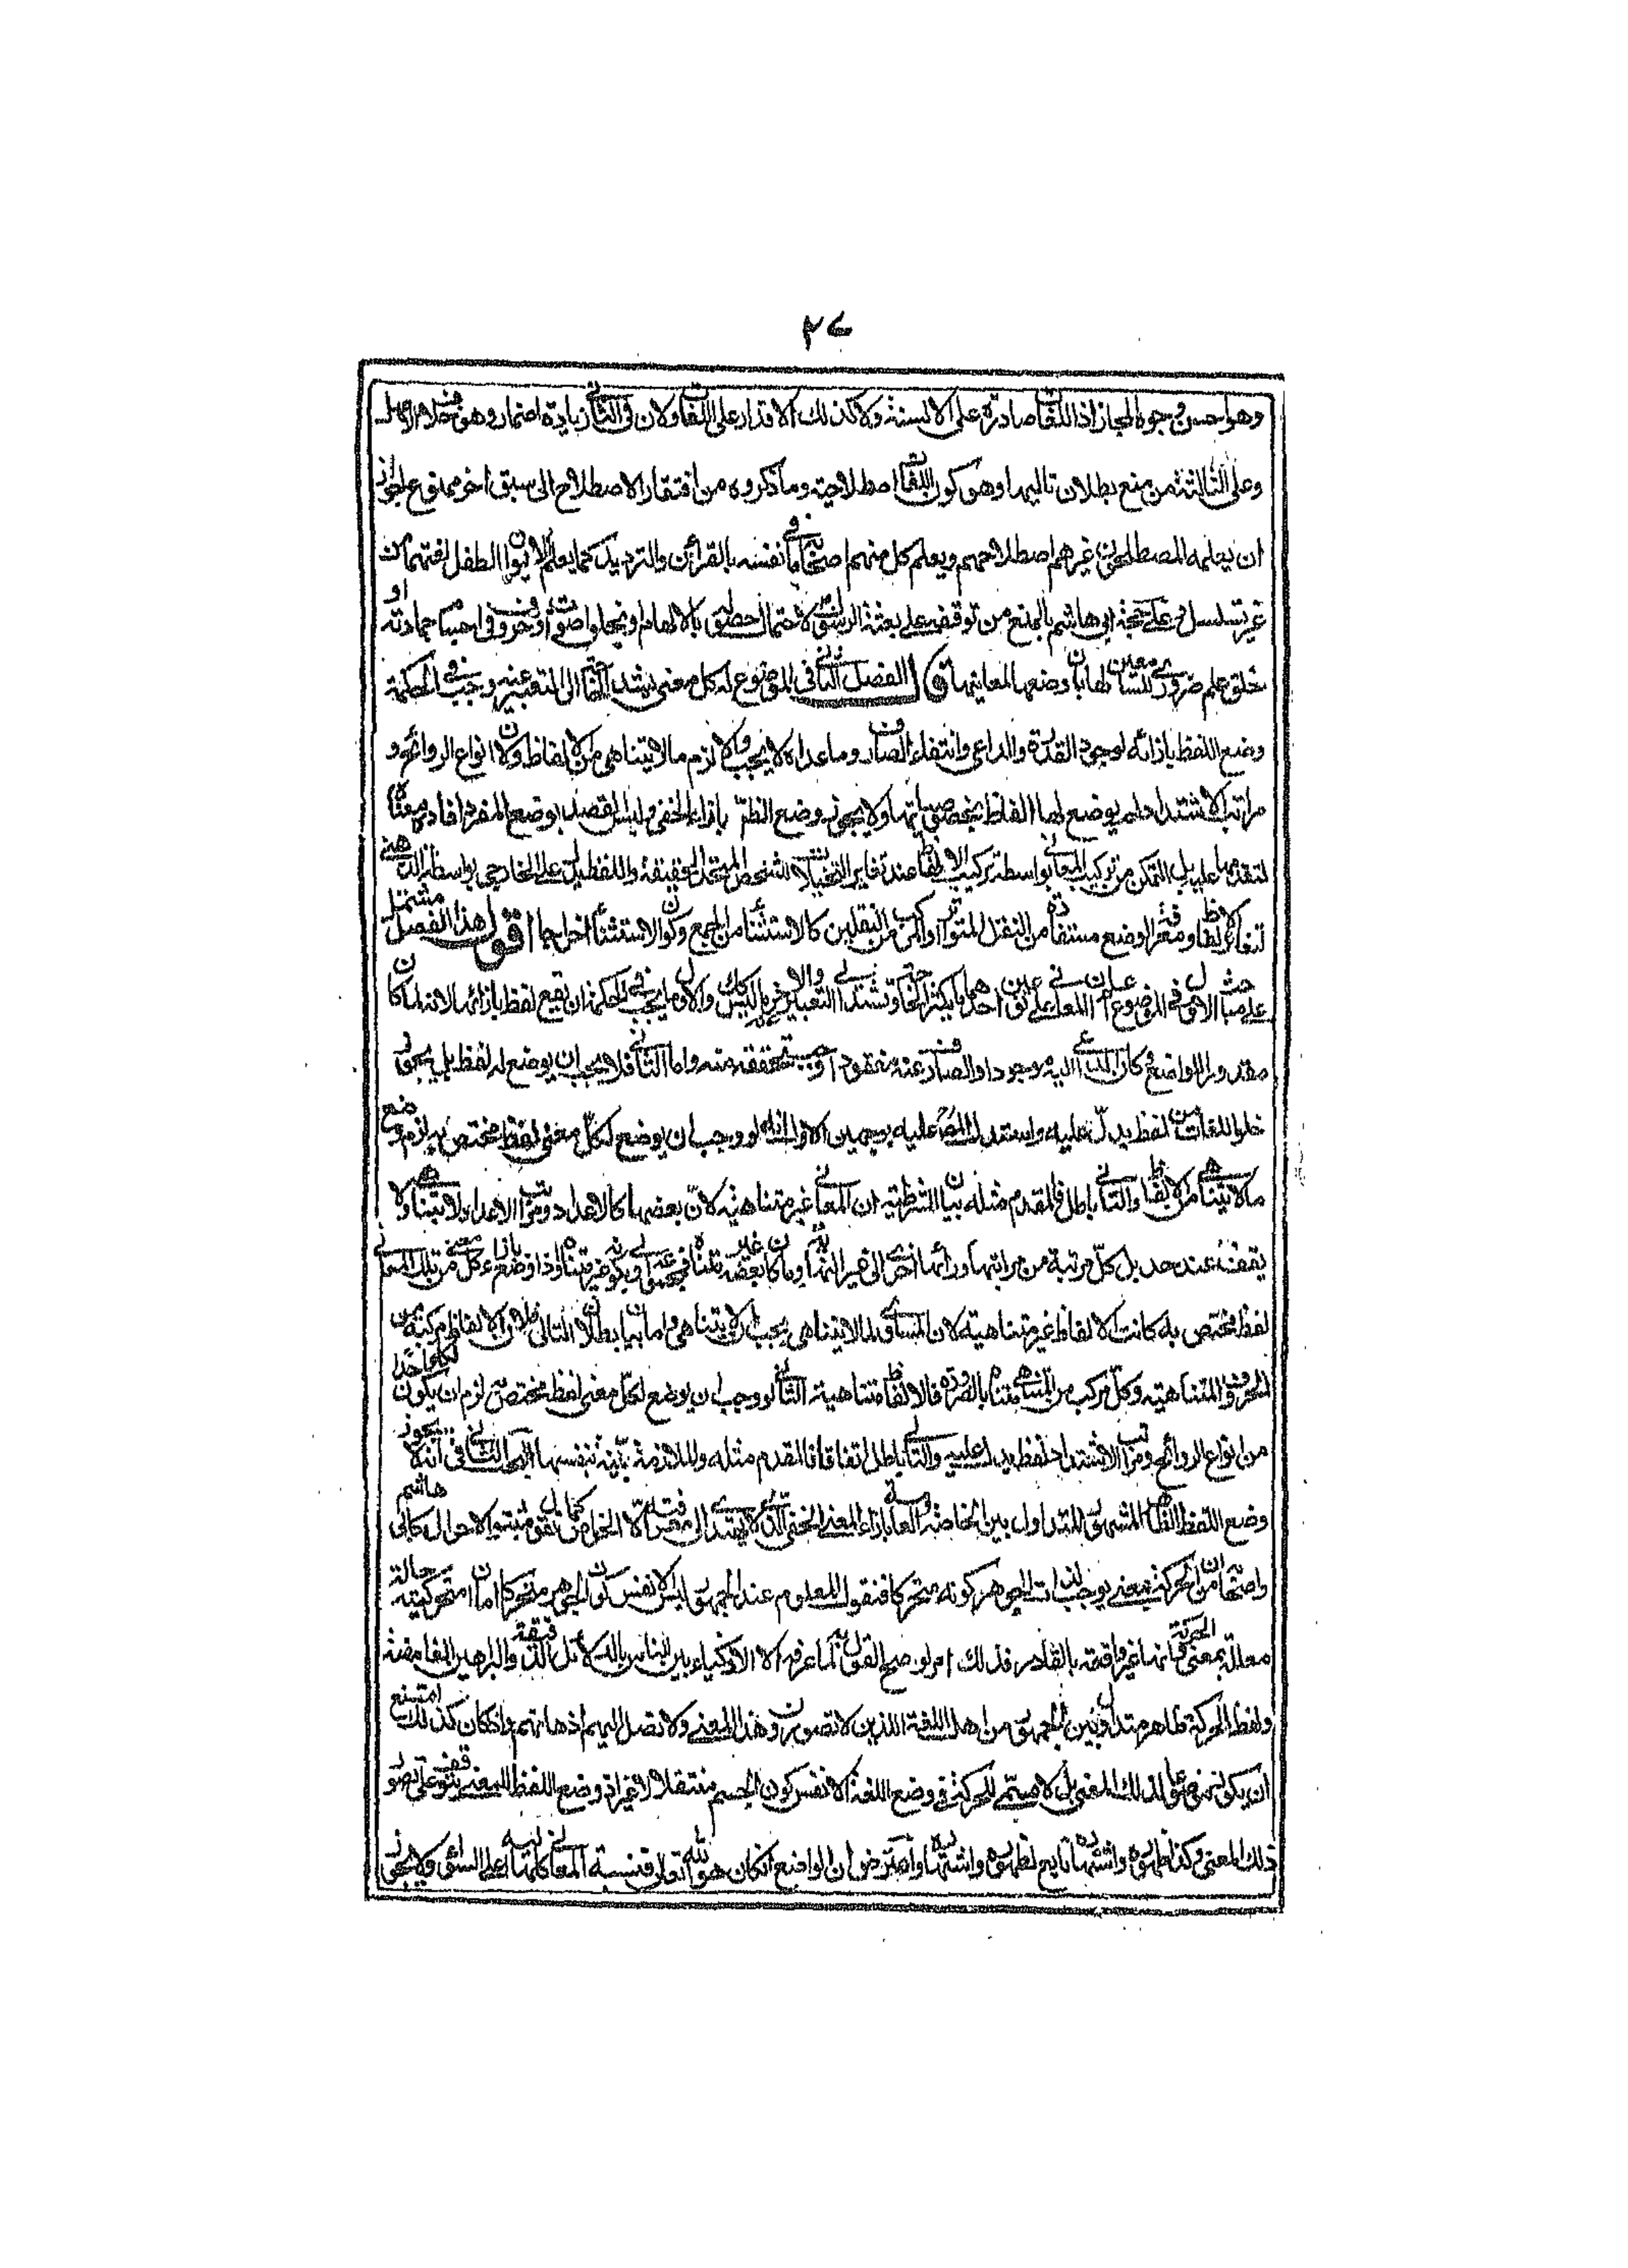 ٢٧
وهو احسن وجوه المجاز اذ اللغات صادرة على الالسنة ولا كذلك الاقدار على اللغات ولان فى الثانى زيادة اضمار وهو خلاف الاصل
وعلى الثالثة من منع بطلان تاليها وهو كون اللغات اصطلاحية وما ذكروه من افتقار الاصطلاح الى سبق اخر ممنوع لجواز
ان يعلمه المصطلحون غيرهم اصطلاحهم ويعلم كل منهم صاحبه ما فى نفسه بالقرائن والترديد كما يعلم الابوان الطفل لغتهما من
غير تسلسل وعلى حجة ابى هاشم بالمنع من توقفه على بعثة الرسول لاحتمال حصوله بالالهام او بخلق اصوات وحروف فى اجسام جمادية او
خلق علم ضرورى للسامعين بان وضعها لمعانيها ق الفصل الثانى فى الموضوع له كل معنى يشتد الحاجة الى التعبير عنه وجب فى الحكمة
وضع اللفظ بازائه لوجود القدرة والداعى وانتفاء الصارف وما عداه لا يجب والا لزم ما لا يتناهى من الالفاظ ولان انواع الروائح و
مراتب الاشتداد لم يوضع لها الفاظ بخصوصياتها ولا يجوز وضع الظاهر بازاء الخفى وليس القصد بوضع المفرد افادة معناه
لتقدمها عليه بل التمكن من تركيب المعانى بواسطة تركيب الالفاظ عند تغاير التخيلات للشخص المتحد الحقيقة واللفظ يدل على الخارجى بواسطة الذهنى
لتغاير الالفاظ ومعرفة الوضع مستفادة من النقل المتواتر والمركب من النقلين كالاستثناء من الجمع وكون الاستثناء اخراجا اقول هذا الفصل مشتمل
على مباحث الاول فى الموضوع له المعانى على نوعين احدهما يكثر الحاجة وتشتد الى التعبير والاخر ما ليس كذلك والاول يجب فى الحكمة ان يضع لفظا بازائه لانه لما كان
مقدورا للواضع وكان الداعى اليه موجودا والصارف عنه مفقودا وجب تحققه منه واما الثانى فلا يجب ان يوضع له لفظ بل يجوز
خلو اللغات من لفظ يدل عليه واستدل المص عليه بوجهين الاول انه لو وجب ان يوضع لكل معنى لفظ مختص به لزم وضع
ما لا يتناهى من الالفاظ والتالى باطل فالمقدم مثله بيان الشرطية ان المعانى غير متناهية لان بعضها كالاعداد ومراتب الاعداد لا يتناهى ولا
يقف عند حد بل كل مرتبة من مراتبها ورائها اخرى الى غير النهاية وما كان بعضه غير متناه فمجموعه اولى بكونه غير متناه واذا وضع بازاء كل معنى من تلك المعانى
لفظ مختص به كانت الالفاظ غير متناهية لان المساوى لما لا يتناهى يجب ان لا يتناهى واما بيان بطلان التالى فلان الالفاظ مركبة من
الحروف المتناهية وكل مركب من المتناهى متناه بالضرورة فالالفاظ متناهية الثانى لو وجب ان يوضع لكل معنى لفظ مختص لزم ان يكون لكل واحد
من انواع الروائح ومراتب الاشتداد لفظ يدل عليه والتالى باطل اتفاقا فالمقدم مثله والملازمة بينة بنفسها البحث الثانى فى انه لا يجوز
وضع اللفظ الظاهر المشهور المتداول بين الخاصة والعامة بازاء المعنى الخفى الذى لا يهتدى الى معرفته الا الخواص كما يقول مثبتوا الاحوال كابى هاشم
واصحابه من ان الحركة معنى يوجب لذات الجوهر كونه متحركا فنقول المعلوم عند الجمهور ليس الا نفس كون الجوهر متحركا اما ان متحركيته حالة
معللة بمعنى فانها غير واقعة بالقادر فذلك امر لو صح القول به لما عرفه الا الاذكياء من الناس بالدلائل الدقيقة والبراهين الغامضة
ولفظ الحركة ظاهر متداول بين الجمهور من اهل اللغة الذين لا يتصورون هذا المعنى ولا تصل اليهم اذهانهم واذا كان كذلك امتنع
ان يكون موضوعا لذلك المعنى بل لا مسمى للحركة فى وضع اللغة الا نفس كون الجسم منتقلا لا غير اذ وضع اللفظ للمعنى يتوقف على تصور
ذلك المعنى وكذا ظهوره واشتهاره تابع لظهوره واشتهاره واعترض ان الواضع ان كان هو الله تعالى فنسبة المعانى كلها اليه على السواء ولا يجوز